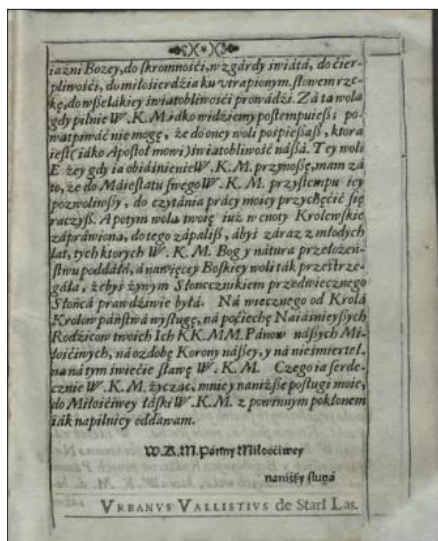 iáźni Bozey, do ſkromnośći, wzgárdy świátá, do ćier-
pliwośći, do miłośierdźia ku vtrapionym. ſłowem rze-
kę, do wßelákiey świątobliwośći prowádźi. Zá tą wolą
gdy pilnie W. K. M. iáko widźiemy poſtempuieß; po-
wątpiwáć nie mogę, że do oney woli poſpießaß, ktora
ieſt (iáko Apoſtoł mowi) świątobliwość náßá. Tey woli
E żey gdy ia obiáśnienie W. K. M. przynoßę, mam zá
to, że do Máieſtatu ſwego W. K. M. przyſtempu iey
pozwoliwßy, do czytánia pracy moiey przychęćić ſię
raczyß. A potym wolą twoię iuż w cnoty Krolewſkie
záprawioną, do tego zápaliß, ábyś záraz z młodych
lat, tych ktorych W. K. M. Bog y náturá przełożeń-
ſtwu poddáłá, á nawięcey Boſkiey woli ták przeſtrze-
gáłá, żebyś żynym Słonecznikiem przedwiecznego
Słońcá prawdźiwie byłá. Ná wiecznego od Krolá
Krolow páńſtwá wyſługę, ná poćiechę Naiáśnieyßych
Rodźicow twoich Ich KK. MM. Pánow náßych Mi-
łośćiwych, ná ozdobę Korony náßey, y ná nieśmiertel-
ną ná tym świećie ſławę W. K. M. Czego ia ſerde-
cznie W. K. M. życząc, mnie y naniżße poſługi moie,
do Miłośćiwey łáſki W. K. M. z powinnym pokłonem
iák napilniey oddawam.
W. K. M. Pánny Miłośćiwey
naniżßy ſługá
VRBANVS VALLISTIVS de Starl Las.